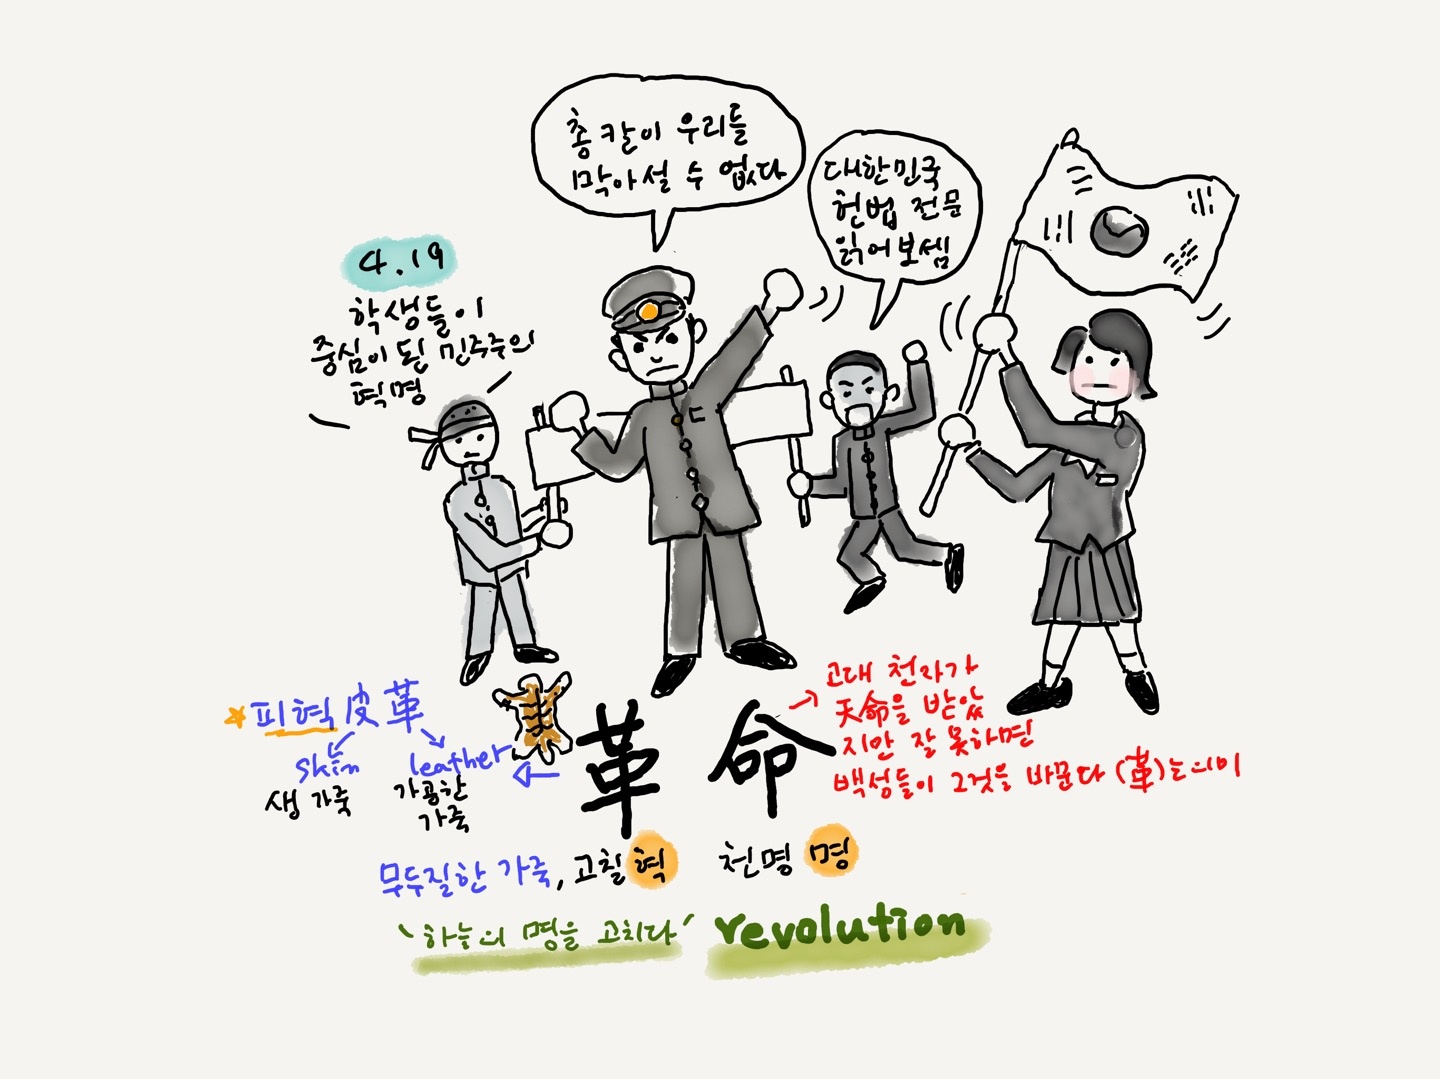 총칼이 우리들
막아설 수 없다
대한민국
헌법 전문
읽어보셈
4.19
학생들이
중심이 된 민주주의
혁명
피혁 皮革
skin
생 가죽
leather
가공한
가죽
革命
고대 천자가
天命을 받았
지만 잘 못하면
백성들이 그것을 바꾼다 (革)는 의미
무두질한 가죽, 고칠 혁
천명 명
'하늘의 명을 고치다' revolution